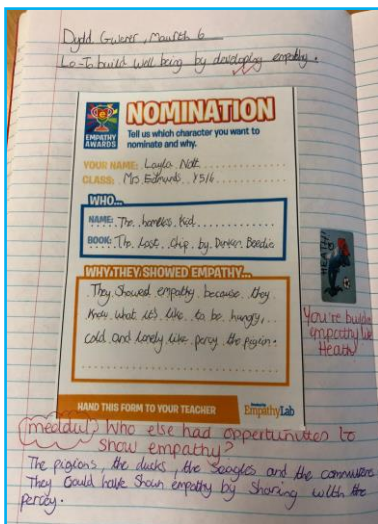 Dydd Gwener, Mawrth 6
LO-To build well being by developing empathy.
EMPATHY
AWARDS
NOMINATION
Tell us which character you want to
nominate and why.
YOUR NAME: Layla Nott
CLASS: Mrs Edmunds Y5/6
WHO...
NAME: The homeless kid
BOOK: The Last chip by Duncan Beedie
WHY THEY SHOWED EMPATHY...
They showed empathy because they
know what it's like to be hungry,
cold and lonely like percy the pigion.
HAND THIS FORM TO YOUR TEACHER
EmpathyLab
HEATH
You're building
empathy like
Heath!
meddwl? Who else had oppertunities to
show empathy?
The pigions, the ducks, the Seagles and the commuters
They could have shown empathy by sharing with the
percey.